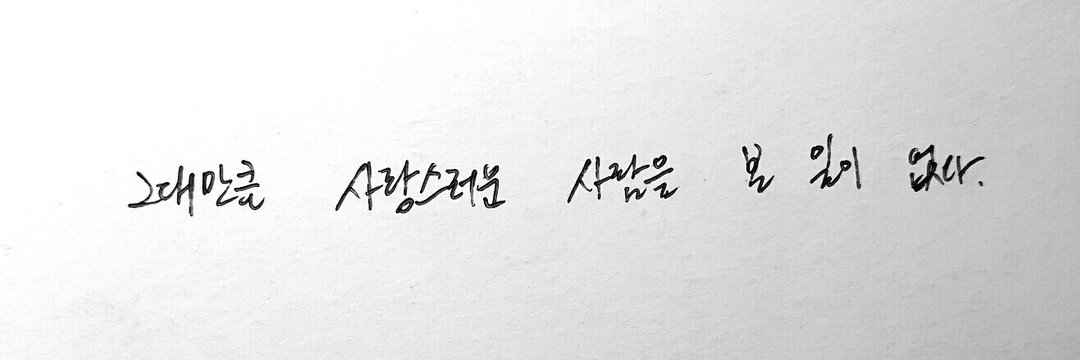 그대만큼 사랑스러운 사람을 본 일이 없다.